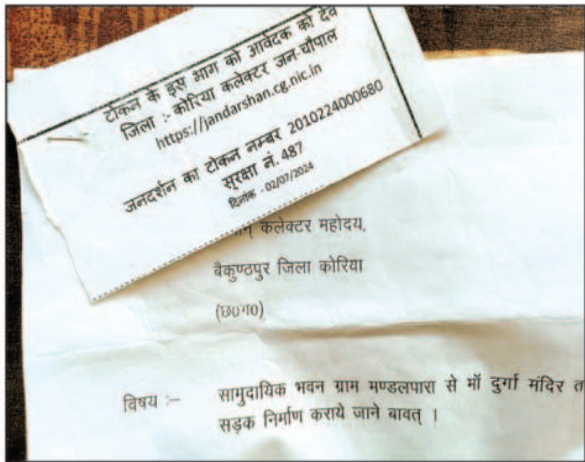 टोकन के इस भाग को आवेदक को देवे
जिला :- कोरिया कलेक्टर जन-चौपाल
https://jandarshan.cg.nic.in
जनदर्शन का टोकन नम्बर 2010224000680
सुरक्षा नं. 487
दिनांक - 02/07/2024
कलेक्टर महोदय,
बैकुण्ठपुर जिला कोरिया
(छ0ग0)
विषय :- सामुदायिक भवन ग्राम मण्डलपारा से माँ दुर्गा मंदिर त
सड़क निर्माण कराये जाने बावत् ।